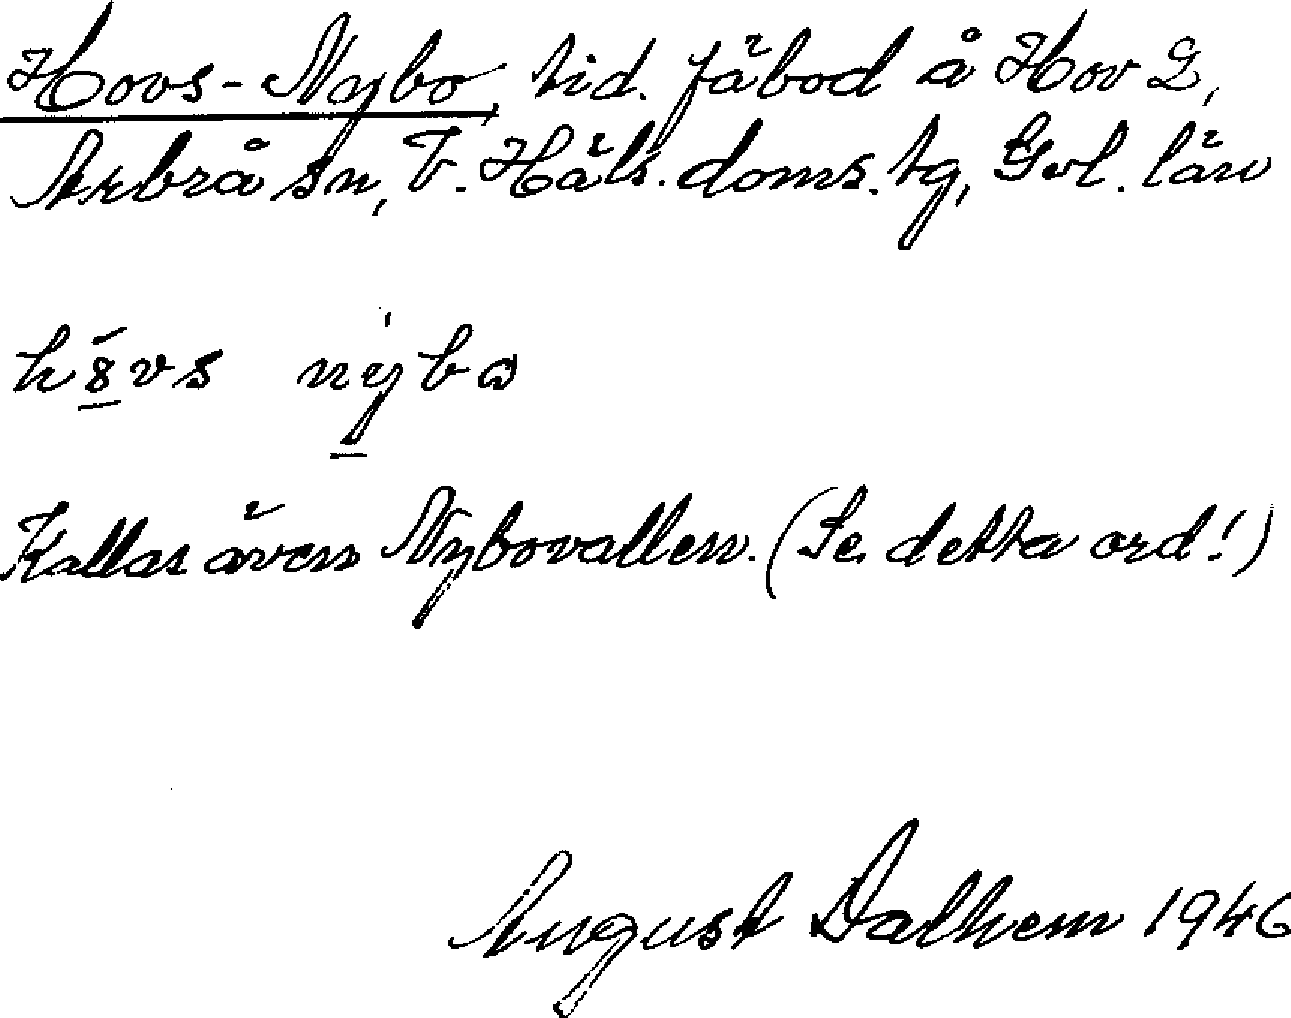 Hovs-Nybo, tid. fäbod å Hov 2,
Arbrå sn, V. Häls. doms. tg, Gvl. län
nybo
Kallas även Nybovallen. (Se detta ord!)
August Dalhem 1946